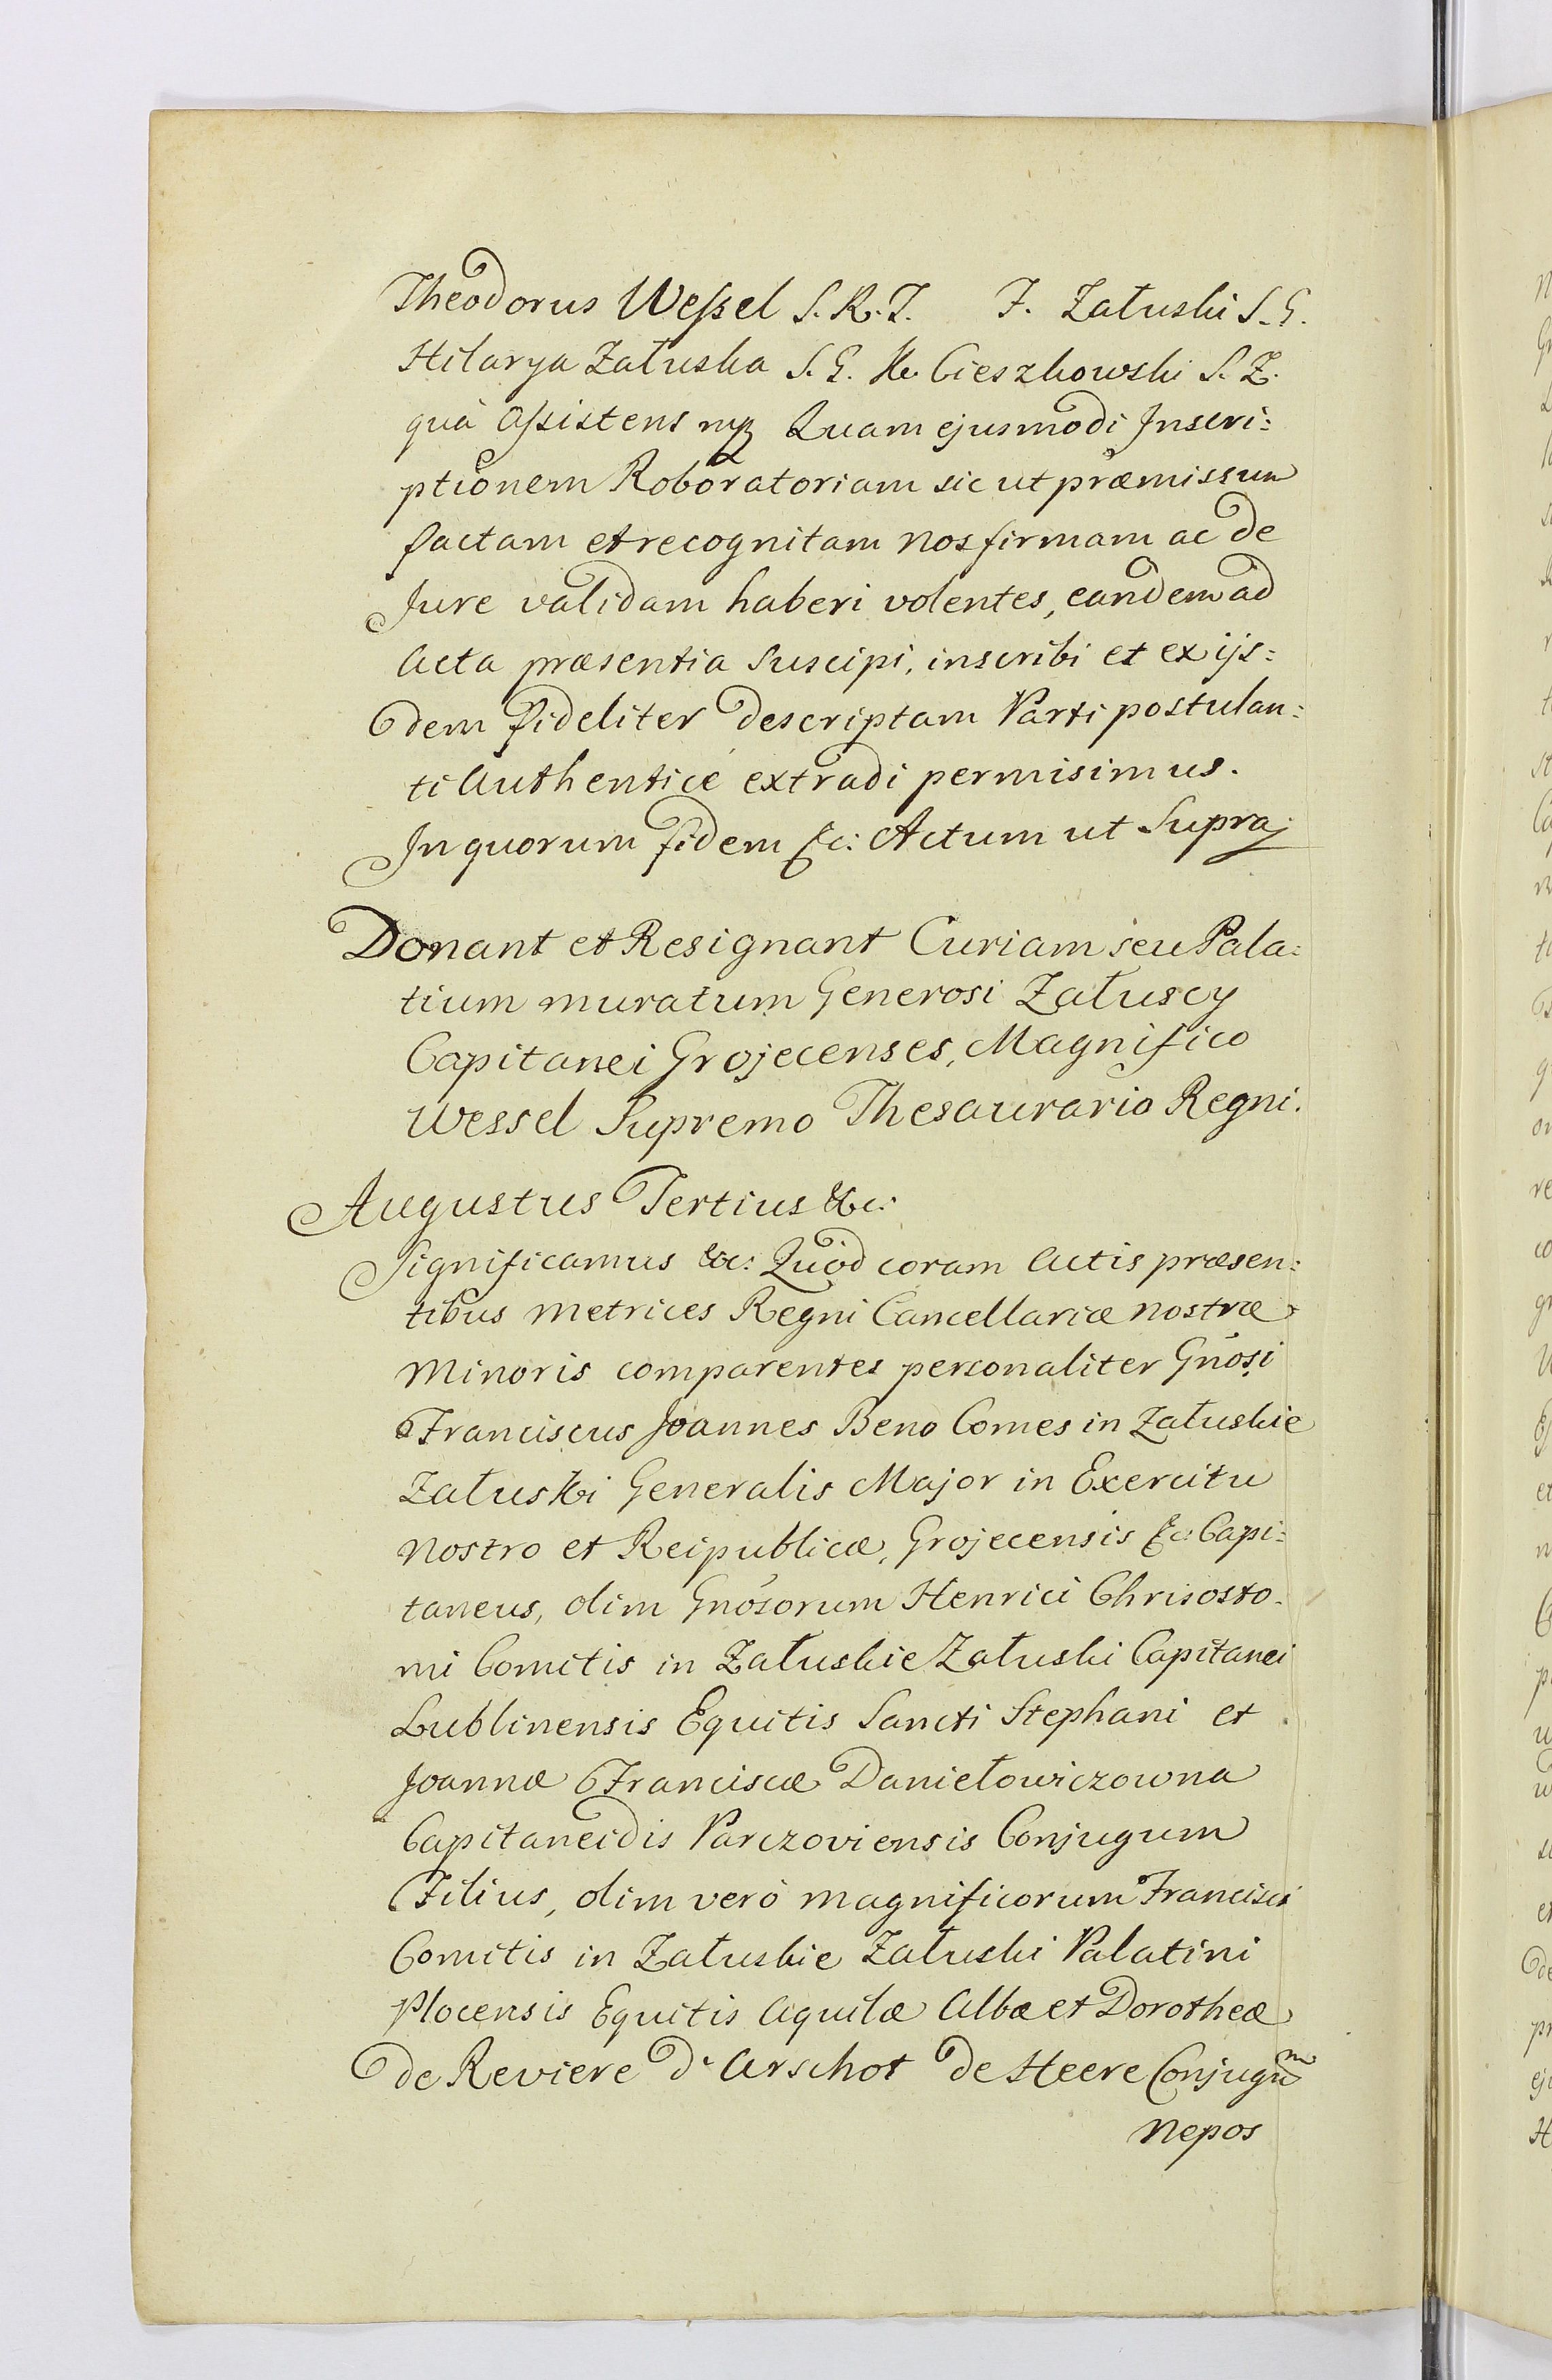 Theodorus Weſsel S. R. T. F. Załuski S. G.
Hilarya Załuska S. G. K. Cieszkowski S. Z.
quà Aſsistens mp Quam ejusmodi Inscri:
ptionem Roboratoriam sic ut præmissum
factam et recognitam nos firmam ac de
Jure validam haberi volentes, eandem ad
Acta præsentia suscipi, inscribi et ex ijs:
dem fideliter descriptam Parti postulan:
ti Authenticè extradi permisimus.
In quorum fidem &c: Actum ut Supra
Donant et Resignant Curiam seu Pala:
tium muratum Generosi Załuscy
Capitanei Grojecenses, Magnifico
Wessel Supremo Thesaurario Regni.
Augustus Tertius &c:
Significamus &c: Quòd coram Actis præsen:
tibus Metrices Regni Cancellariæ nostræ
Minoris comparentes personaliter Gnosi
Franciscus Joannes Beno Comes in Załuskie
Załuski Generalis Major in Exercitu
nostro et Reipublicæ, Grojecensis &c: Capi:
taneus, olim Gnosorum Henrici Chrisosto:
mi Comitis in Załuskie Załuski Capitanei
Lublinensis Equitis Sancti Stephani et
Joannæ Franciscæ Daniełowiczowna
Capitaneidis Parczoviensis Conjugum
Filius, olim verò Magnificorum Francisci
Comitis in Załuskie Załuski Palatini
Plocensis Equitis Aquilæ Albæ et Dorotheæ
de Reviere d'Arschot de Heere Conjugum
Nepos